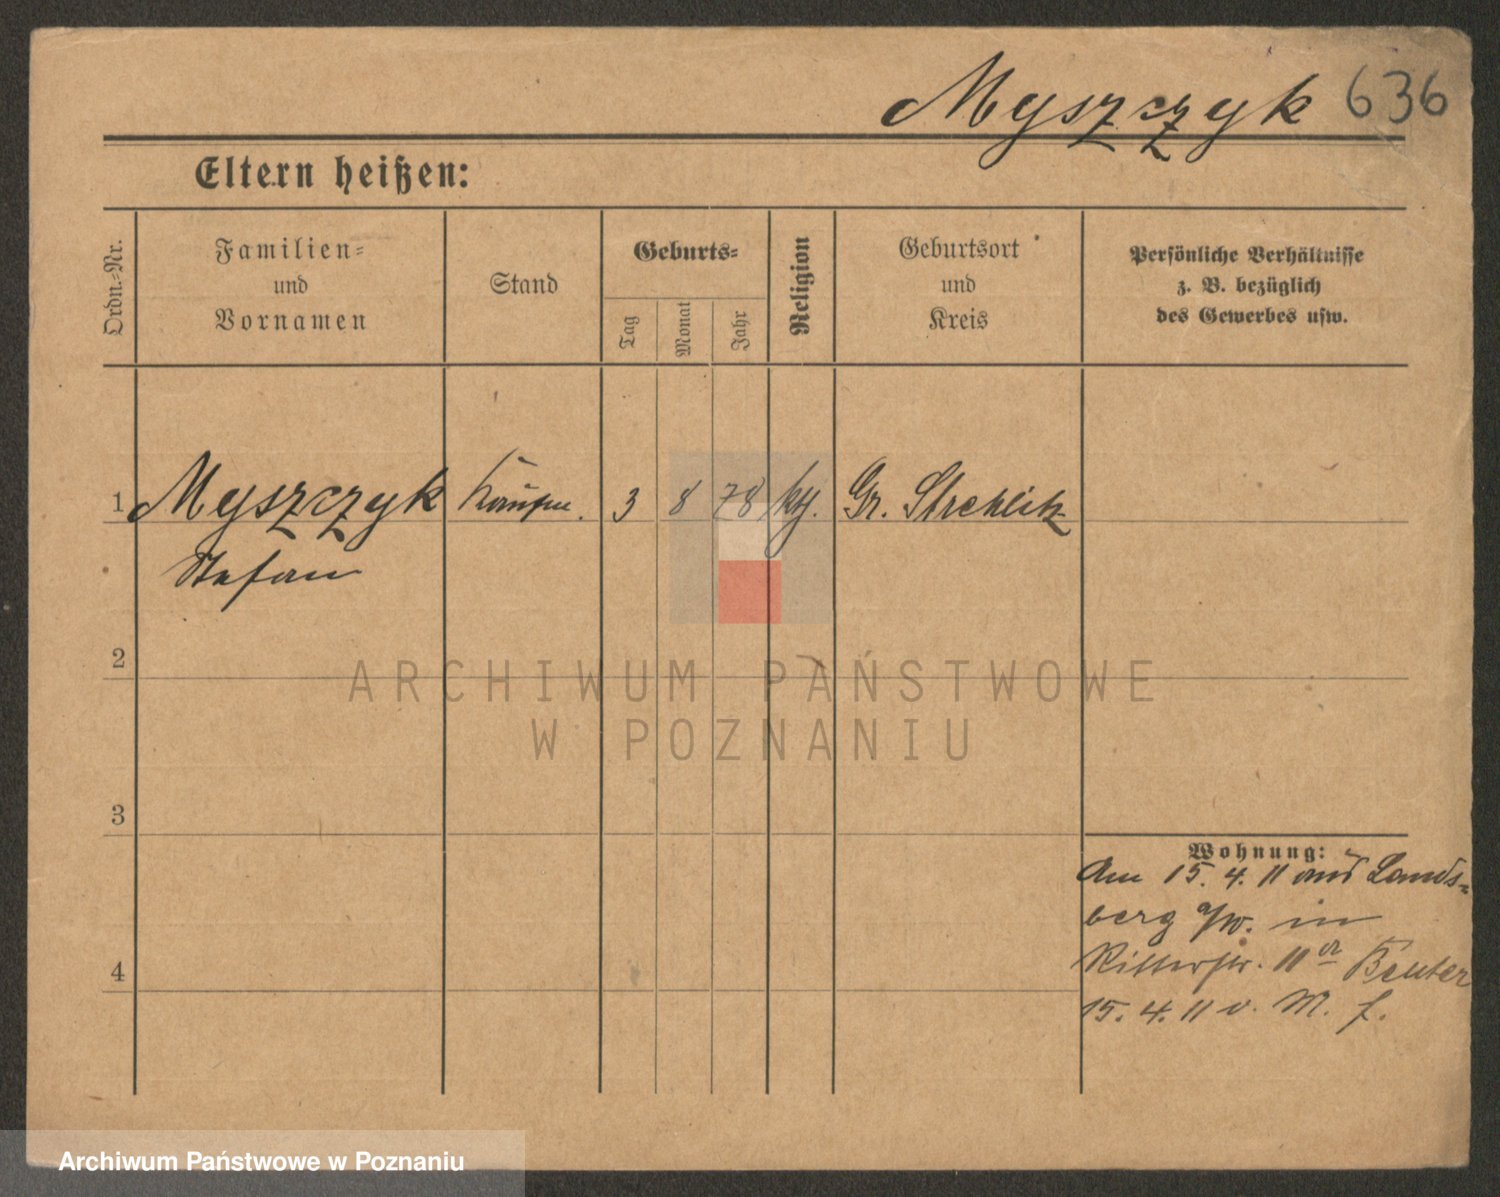 Myszczyk 636
Eltern heißen:
Ordn.-Nr.
Familien-
und
Vornamen
Stand
Geburts-
Tag
Monat
Jahr
Religion
Geburtsort
und
Kreis
Persönliche Verhältnisse
z. B. bezüglich
des Gewerbes usw.
1 Myszczyk Kaufm. 3 8 78 kth. Gr. Strehlitz
Stefan
2
3
4
Wohnung:
Am 15. 4. 11 aus Lands-
berg a/W. in
Ritterstr. 11 Beuter
15. 4. 11 v. M. f.
ARCHIWUM PAŃSTWOWE
W POZNANIU
Archiwum Państwowe w Poznaniu